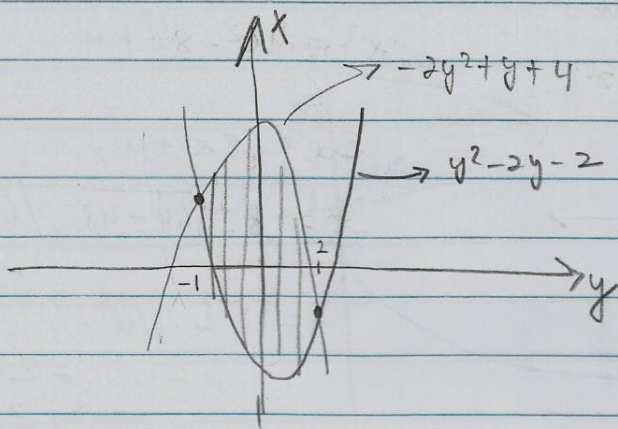 x
-2y²+y+4
y²-2y-2
2
-1
y